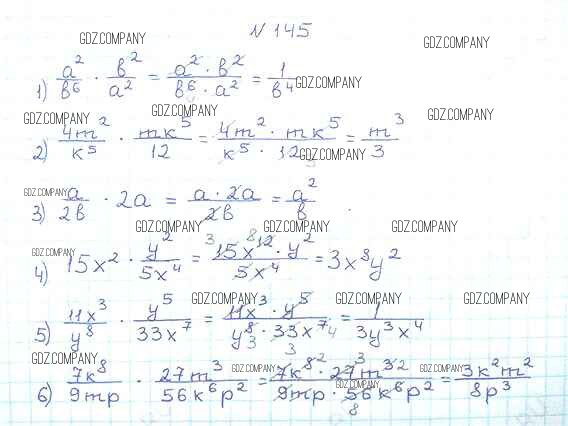 N 145
GDZ.COMPANY GDZ.COMPANY
1) a²/b⁶ · b²/a² = a²·b²/b⁶·a² = 1/b⁴ GDZ.COMPANY
GDZ.COMPANY GDZ.COMPANY GDZ.COMPANY
2) 4m²/k⁵ · mk⁵/12 = 4m²·mk⁵/k⁵·12 3 = m³/3
GDZ.COMPANY
GDZ.COMPANY GDZ.COMPANY
3) a/2b · 2a = a·2a/2b = a²/b
GDZ.COMPANY GDZ.COMPANY GDZ.COMPANY
GDZ.COMPANY
4) 15x² · y²/5x⁴ = 3 15x⁸ ¹²·y²/5x⁴ = 3x⁸y²
GDZ.COMPANY GDZ.COMPANY GDZ.COMPANY
5) 11x³/y⁸ · y⁵/33x⁷ = 11x³·y⁵/y⁸ 3·33x⁷ 4 3 = 1/3y³x⁴
GDZ.COMPANY GDZ.COMPANY GDZ.COMPANY
6) 7k⁸/9mp · 27m³/56k⁶p² = 7k⁸ ²·27 3 m³ ²/9mp·56 8 k⁶p² = 3k²m²/8p³
GDZ.COMPANY GDZ.COMPANY